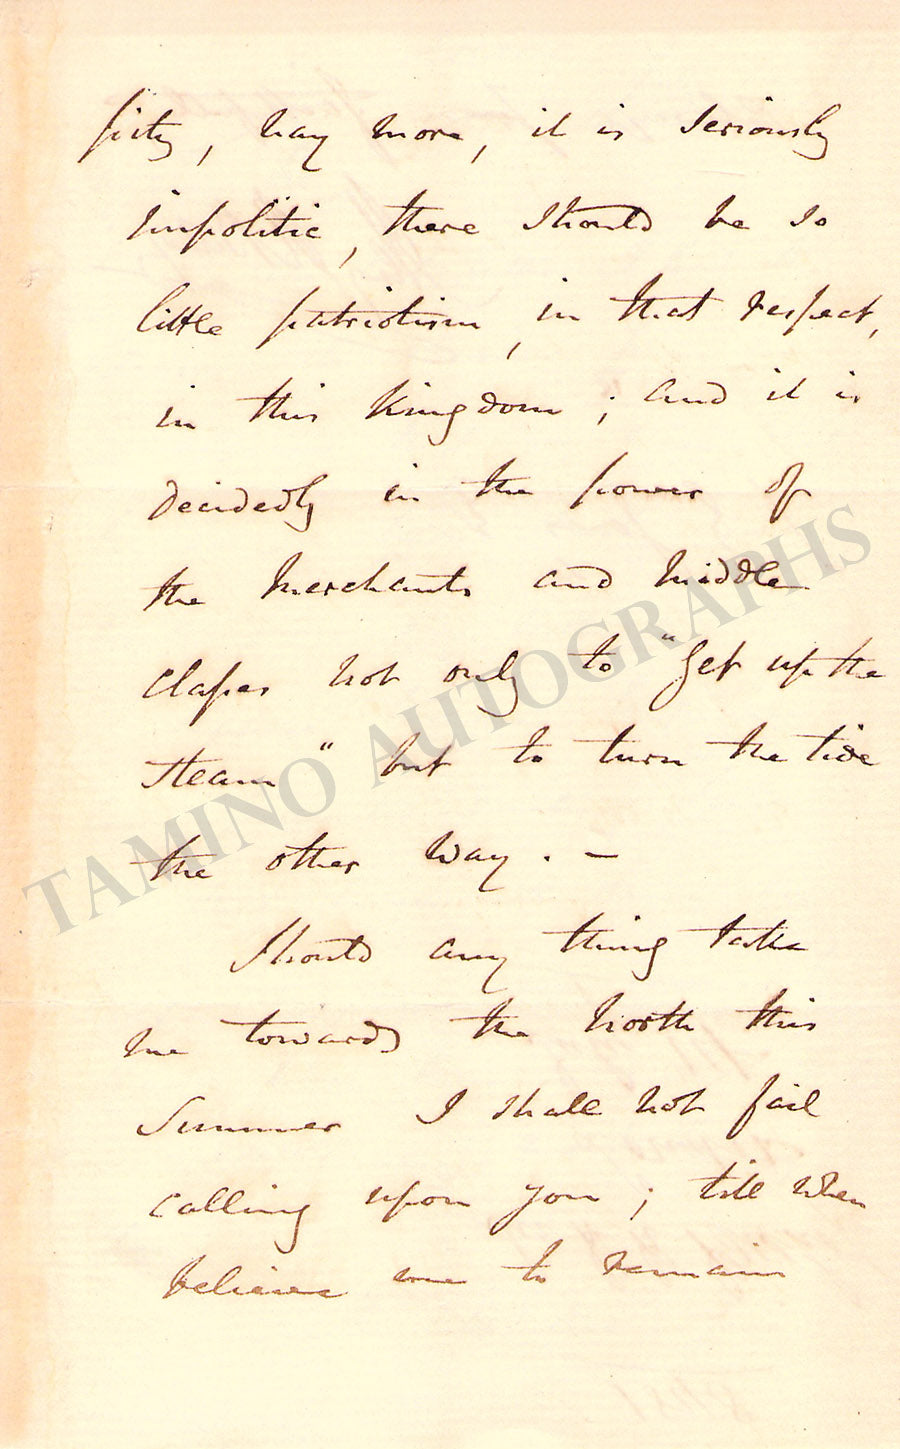 pity, nay more, it is seriously
impolitic, there should be so
little patriotism, in that respect,
in this Kingdom; and it is
decidedly in the power of
the Merchants and Middle
classes not only to "get up the
steam" but to turn the tide
the other way. –
Should any thing take
me towards the North this
Summer I shall not fail
calling upon you; till when
believe me to remain
TAMINO AUTOGRAPHS